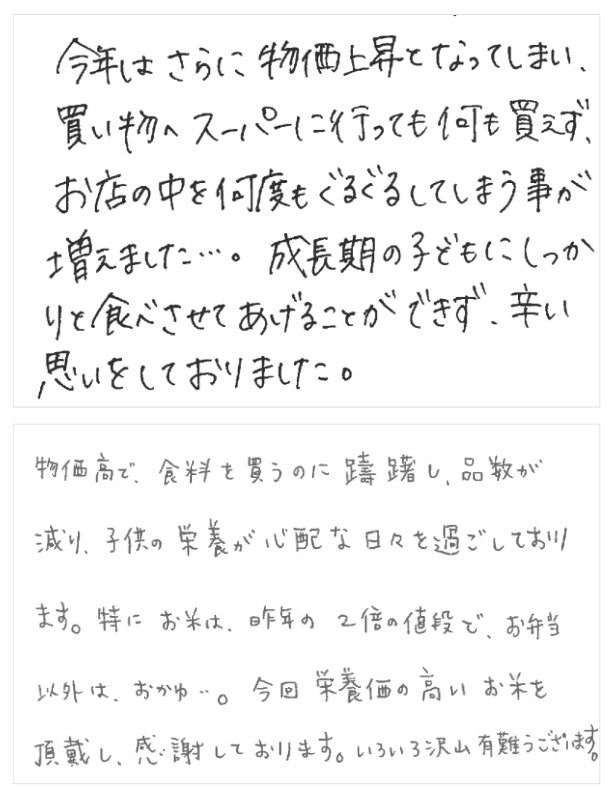 今年はさらに物価上昇となってしまい、
買い物へスーパーに行っても何も買えず、
お店の中を何度もぐるぐるしてしまう事が
増えました…。成長期の子どもにしっか
りと食べさせてあげることができず、辛い
思いをしておりました。
物価高で、食料を買うのに躊躇し、品数が
減り、子供の栄養が心配な日々を過ごしており
ます。特にお米は、昨年の2倍の値段で、お弁当
以外は、おかゆ…。今回栄養価の高いお米を
頂戴し、感謝しております。いろいろ沢山有難うございます。